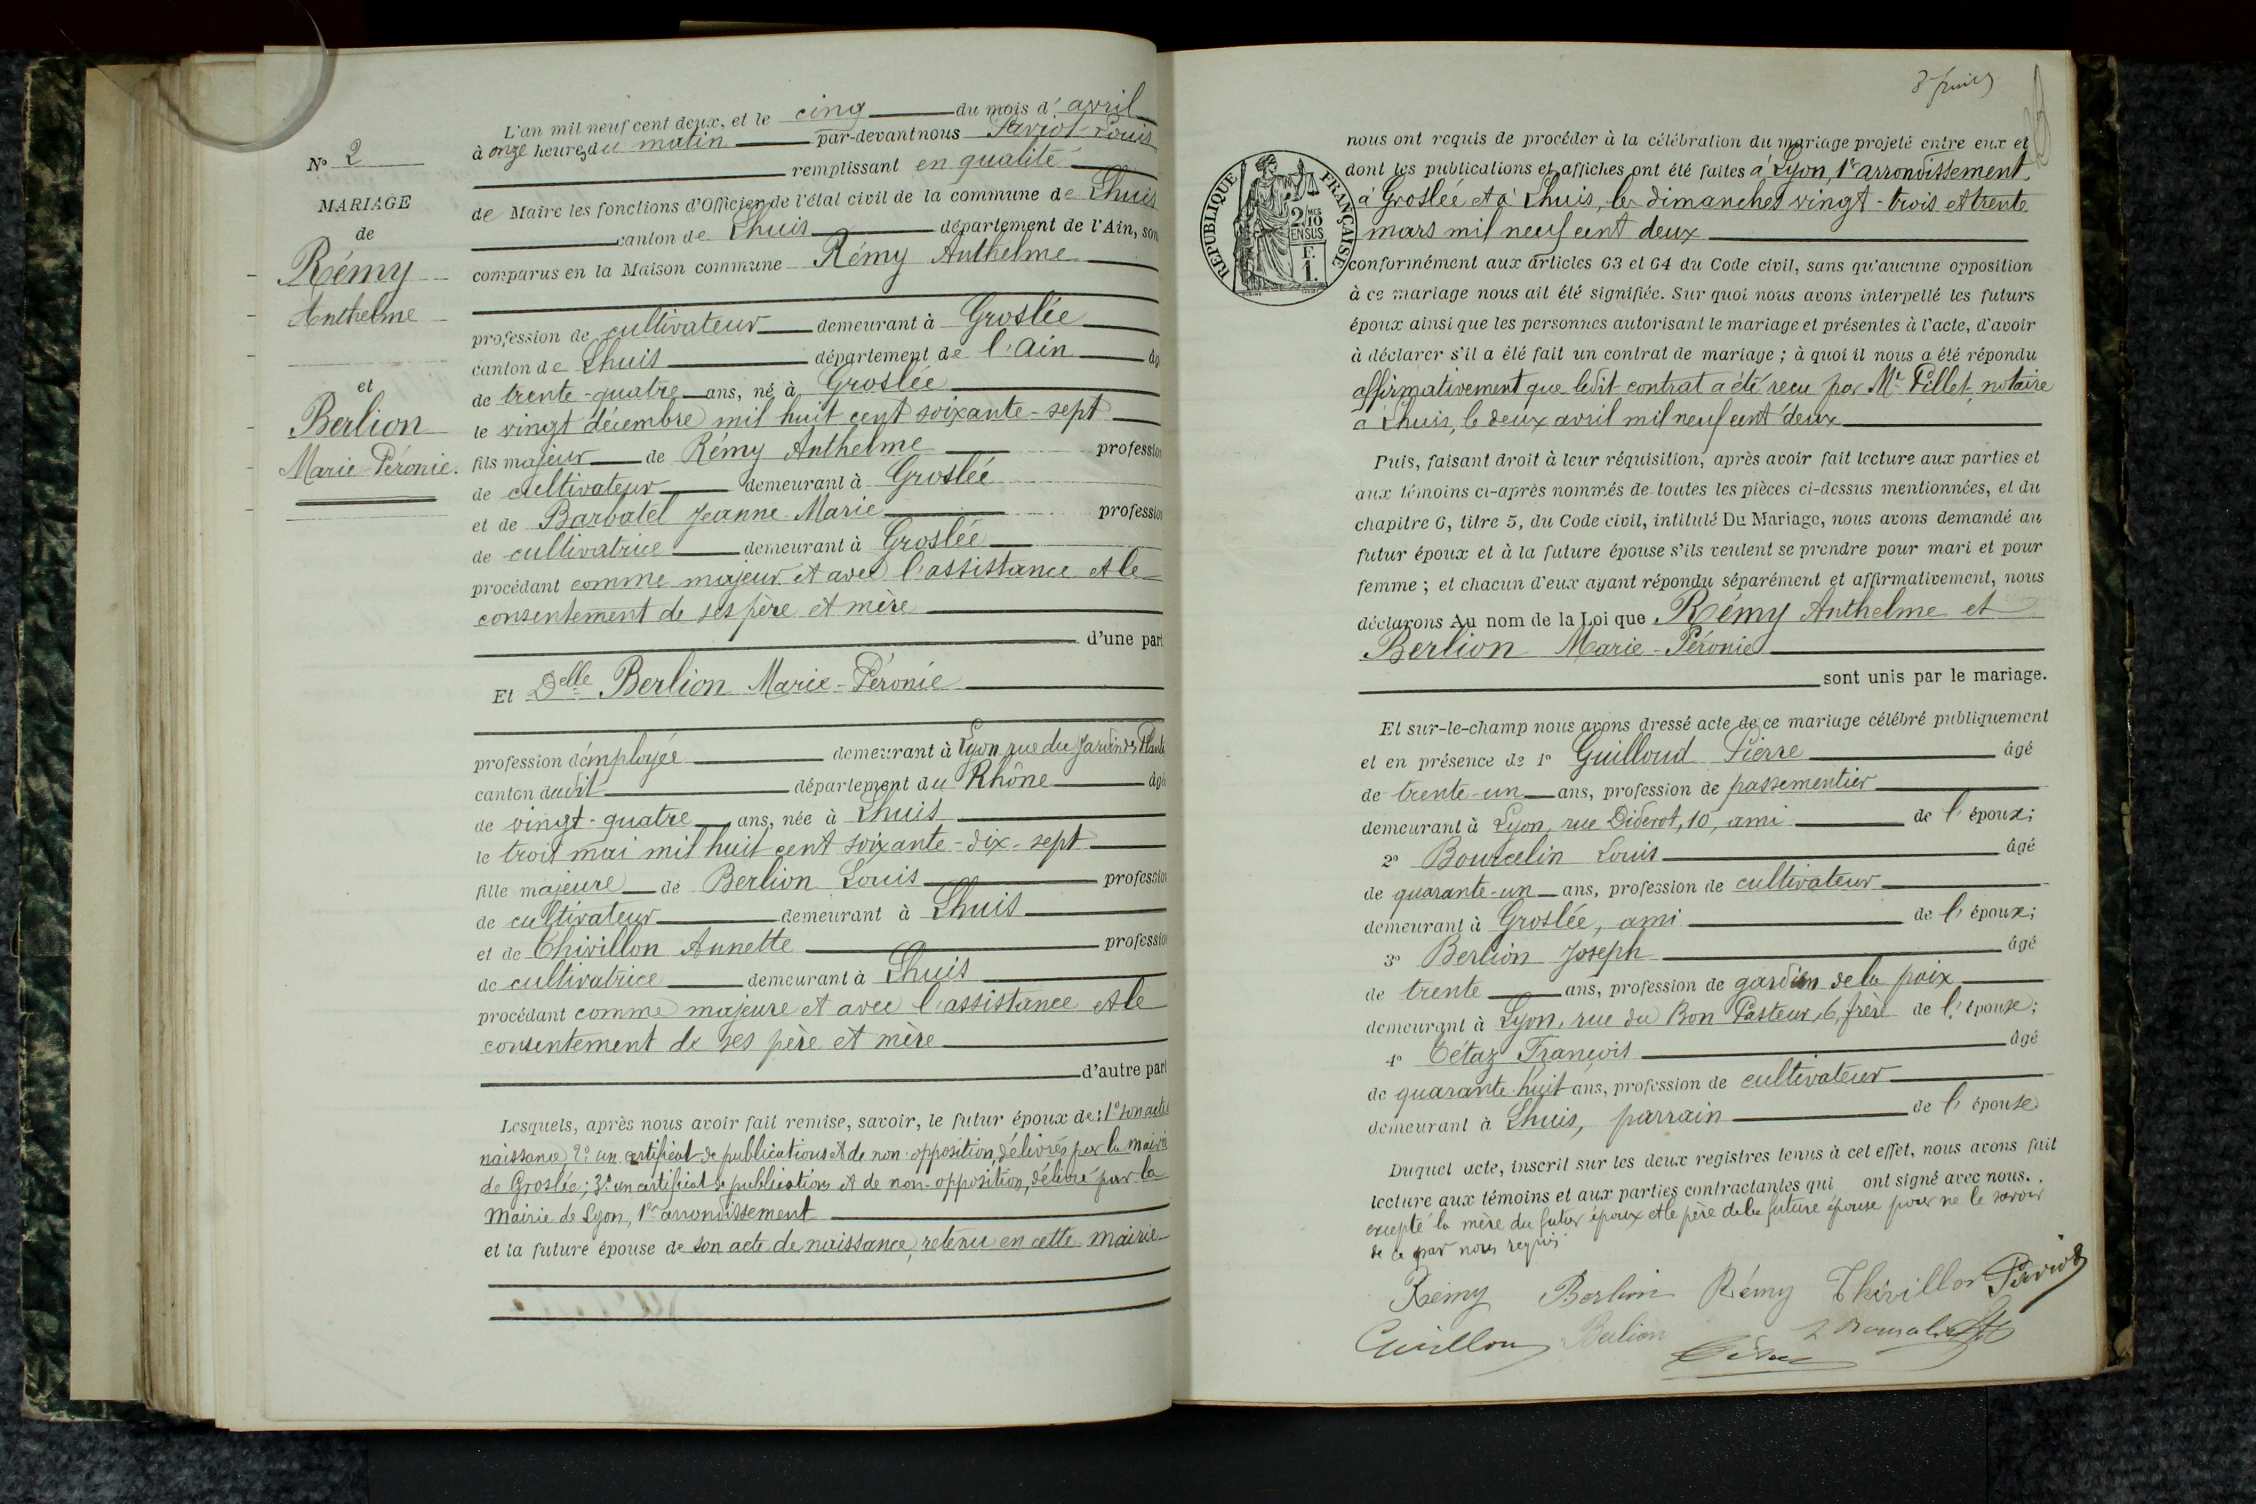 N° 2
MARIAGE
de
Rémy
Anthelme
et
Berlion
Marie-Péronie.
L'an mil neuf cent deux, et le cinq du mois d'avril
à onze heures du matin par-devant nous Louis
remplissant en qualité
de Maire les fonctions d'Officier de l'état civil de la commune de Lhuis
canton de Lhuis département de l'Ain, son
comparus en la Maison commune Rémy Anthelme
profession de cultivateur demeurant à Groslée
canton de Lhuis département de l'Ain âgé
de trente-quatre ans, né à Groslée
le vingt décembre mil huit cent soixante-sept
fils majeur de Rémy Anthelme profession
de cultivateur demeurant à Groslée
et de Barbatel Jeanne-Marie profession
de cultivatrice demeurant à Groslée
procédant comme majeur et avec l'assistance et le
consentement de ses père et mère
d'une part
Et Delle Berlion Marie-Péronie
profession d'employée demeurant à Lyon rue du Jardin des Plantes
canton dudit département du Rhône âgé
de vingt-quatre ans, née à Lhuis
le trois mai mil huit cent soixante-dix-sept
fille majeure de Berlion Louis profession
de cultivateur demeurant à Lhuis
et de Thivillon Annette profession
de cultivatrice demeurant à Lhuis
procédant comme majeure et avec l'assistance et le
consentement de ses père et mère
d'autre part
Lesquels, après nous avoir fait remise, savoir, le futur époux de: 1° son acte de
naissance, 2° un certificat de publications et de non-opposition, délivrés par la mairie
de Groslée; 3° un certificat de publications et de non-opposition, délivré par la
Mairie de Lyon, 1er arrondissement
et la future épouse de son acte de naissance, retenu en cette mairie
REPUBLIQUE FRANÇAISE
2 MES
10
EN SUS
1 F.
nous ont requis de procéder à la célébration du mariage projeté entre eux et
dont les publications et affiches ont été faites à Lyon, 1er arrondissement,
à Groslée et à Lhuis, les dimanches vingt-trois et trente
mars mil neuf cent deux
conformément aux articles 63 et 64 du Code civil, sans qu'aucune opposition
à ce mariage nous ait été signifiée. Sur quoi nous avons interpellé les futurs
époux ainsi que les personnes autorisant le mariage et présentes à l'acte, d'avoir
à déclarer s'il a été fait un contrat de mariage; à quoi il nous a été répondu
affirmativement que ledit contrat a été reçu par Me Pillet, notaire
à Lhuis, le deux avril mil neuf cent deux
Puis, faisant droit à leur réquisition, après avoir fait lecture aux parties et
aux témoins ci-après nommés de toutes les pièces ci-dessus mentionnées, et du
chapitre 6, titre 5, du Code civil, intitulé Du Mariage, nous avons demandé au
futur époux et à la future épouse s'ils veulent se prendre pour mari et pour
femme; et chacun d'eux ayant répondu séparément et affirmativement, nous
déclarons Au nom de la Loi que Rémy Anthelme et
Berlion Marie-Péronie
sont unis par le mariage.
Et sur-le-champ nous avons dressé acte de ce mariage célébré publiquement
et en présence de 1° Guilloud Pierre âgé
de trente-un ans, profession de passementier
demeurant à Lyon, rue Diderot, 10, ami de l'époux;
2° Bourcelin Louis âgé
de quarante-un ans, profession de cultivateur
demeurant à Groslée, ami de l'époux;
3° Berlion Joseph âgé
de trente ans, profession de gardien de la paix
demeurant à Lyon, rue du Bon Pasteur, 6, frère de l'épouse;
4° Tétaz François âgé
de quarante-huit ans, profession de cultivateur
demeurant à Lhuis, parrain de l'épouse
Duquel acte, inscrit sur les deux registres tenus à cet effet, nous avons fait
lecture aux témoins et aux parties contractantes qui ont signé avec nous.
excepté la mère du futur époux et le père de la future épouse pour ne le savoir
de ce par nous requis
Rémy Berlion Rémy Thivillon
Guilloud Berlion